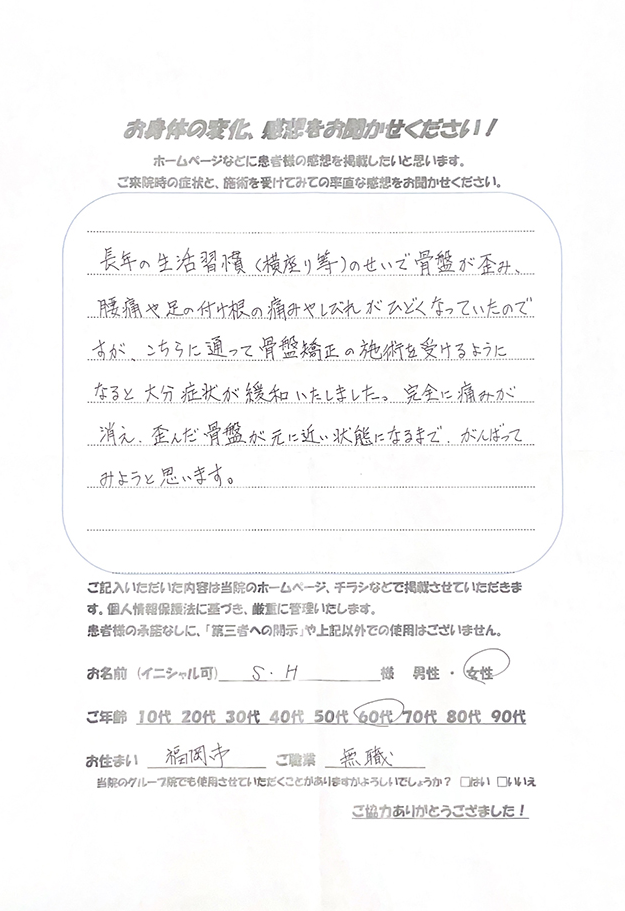 お身体の変化、感想をお聞かせください！
ホームページなどに患者様の感想を掲載したいと思います。
ご来院時の症状と、施術を受けてみての率直な感想をお聞かせください。
長年の生活習慣(横座り等)のせいで骨盤が歪み、
腰痛や足の付け根の痛みやしびれがひどくなっていたので
すが、こちらに通って骨盤矯正の施術を受けるように
なると大分症状が緩和いたしました。完全に痛みが
消え、歪んだ骨盤が元に近い状態になるまで、がんばって
みようと思います。
ご記入いただいた内容は当院のホームページ、チラシなどで掲載させていただきま
す。個人情報保護法に基づき、厳重に管理いたします。
患者様の承諾なしに、「第三者への開示」や上記以外での使用はございません。
お名前（イニシャル可） S・H 様 男性 ・ 女性
ご年齢 10代 20代 30代 40代 50代 60代 70代 80代 90代
お住まい 福岡市 ご職業 無職
当院のグループ院でも使用させていただくことがありますがよろしいでしょうか？ □はい □いいえ
ご協力ありがとうござました！